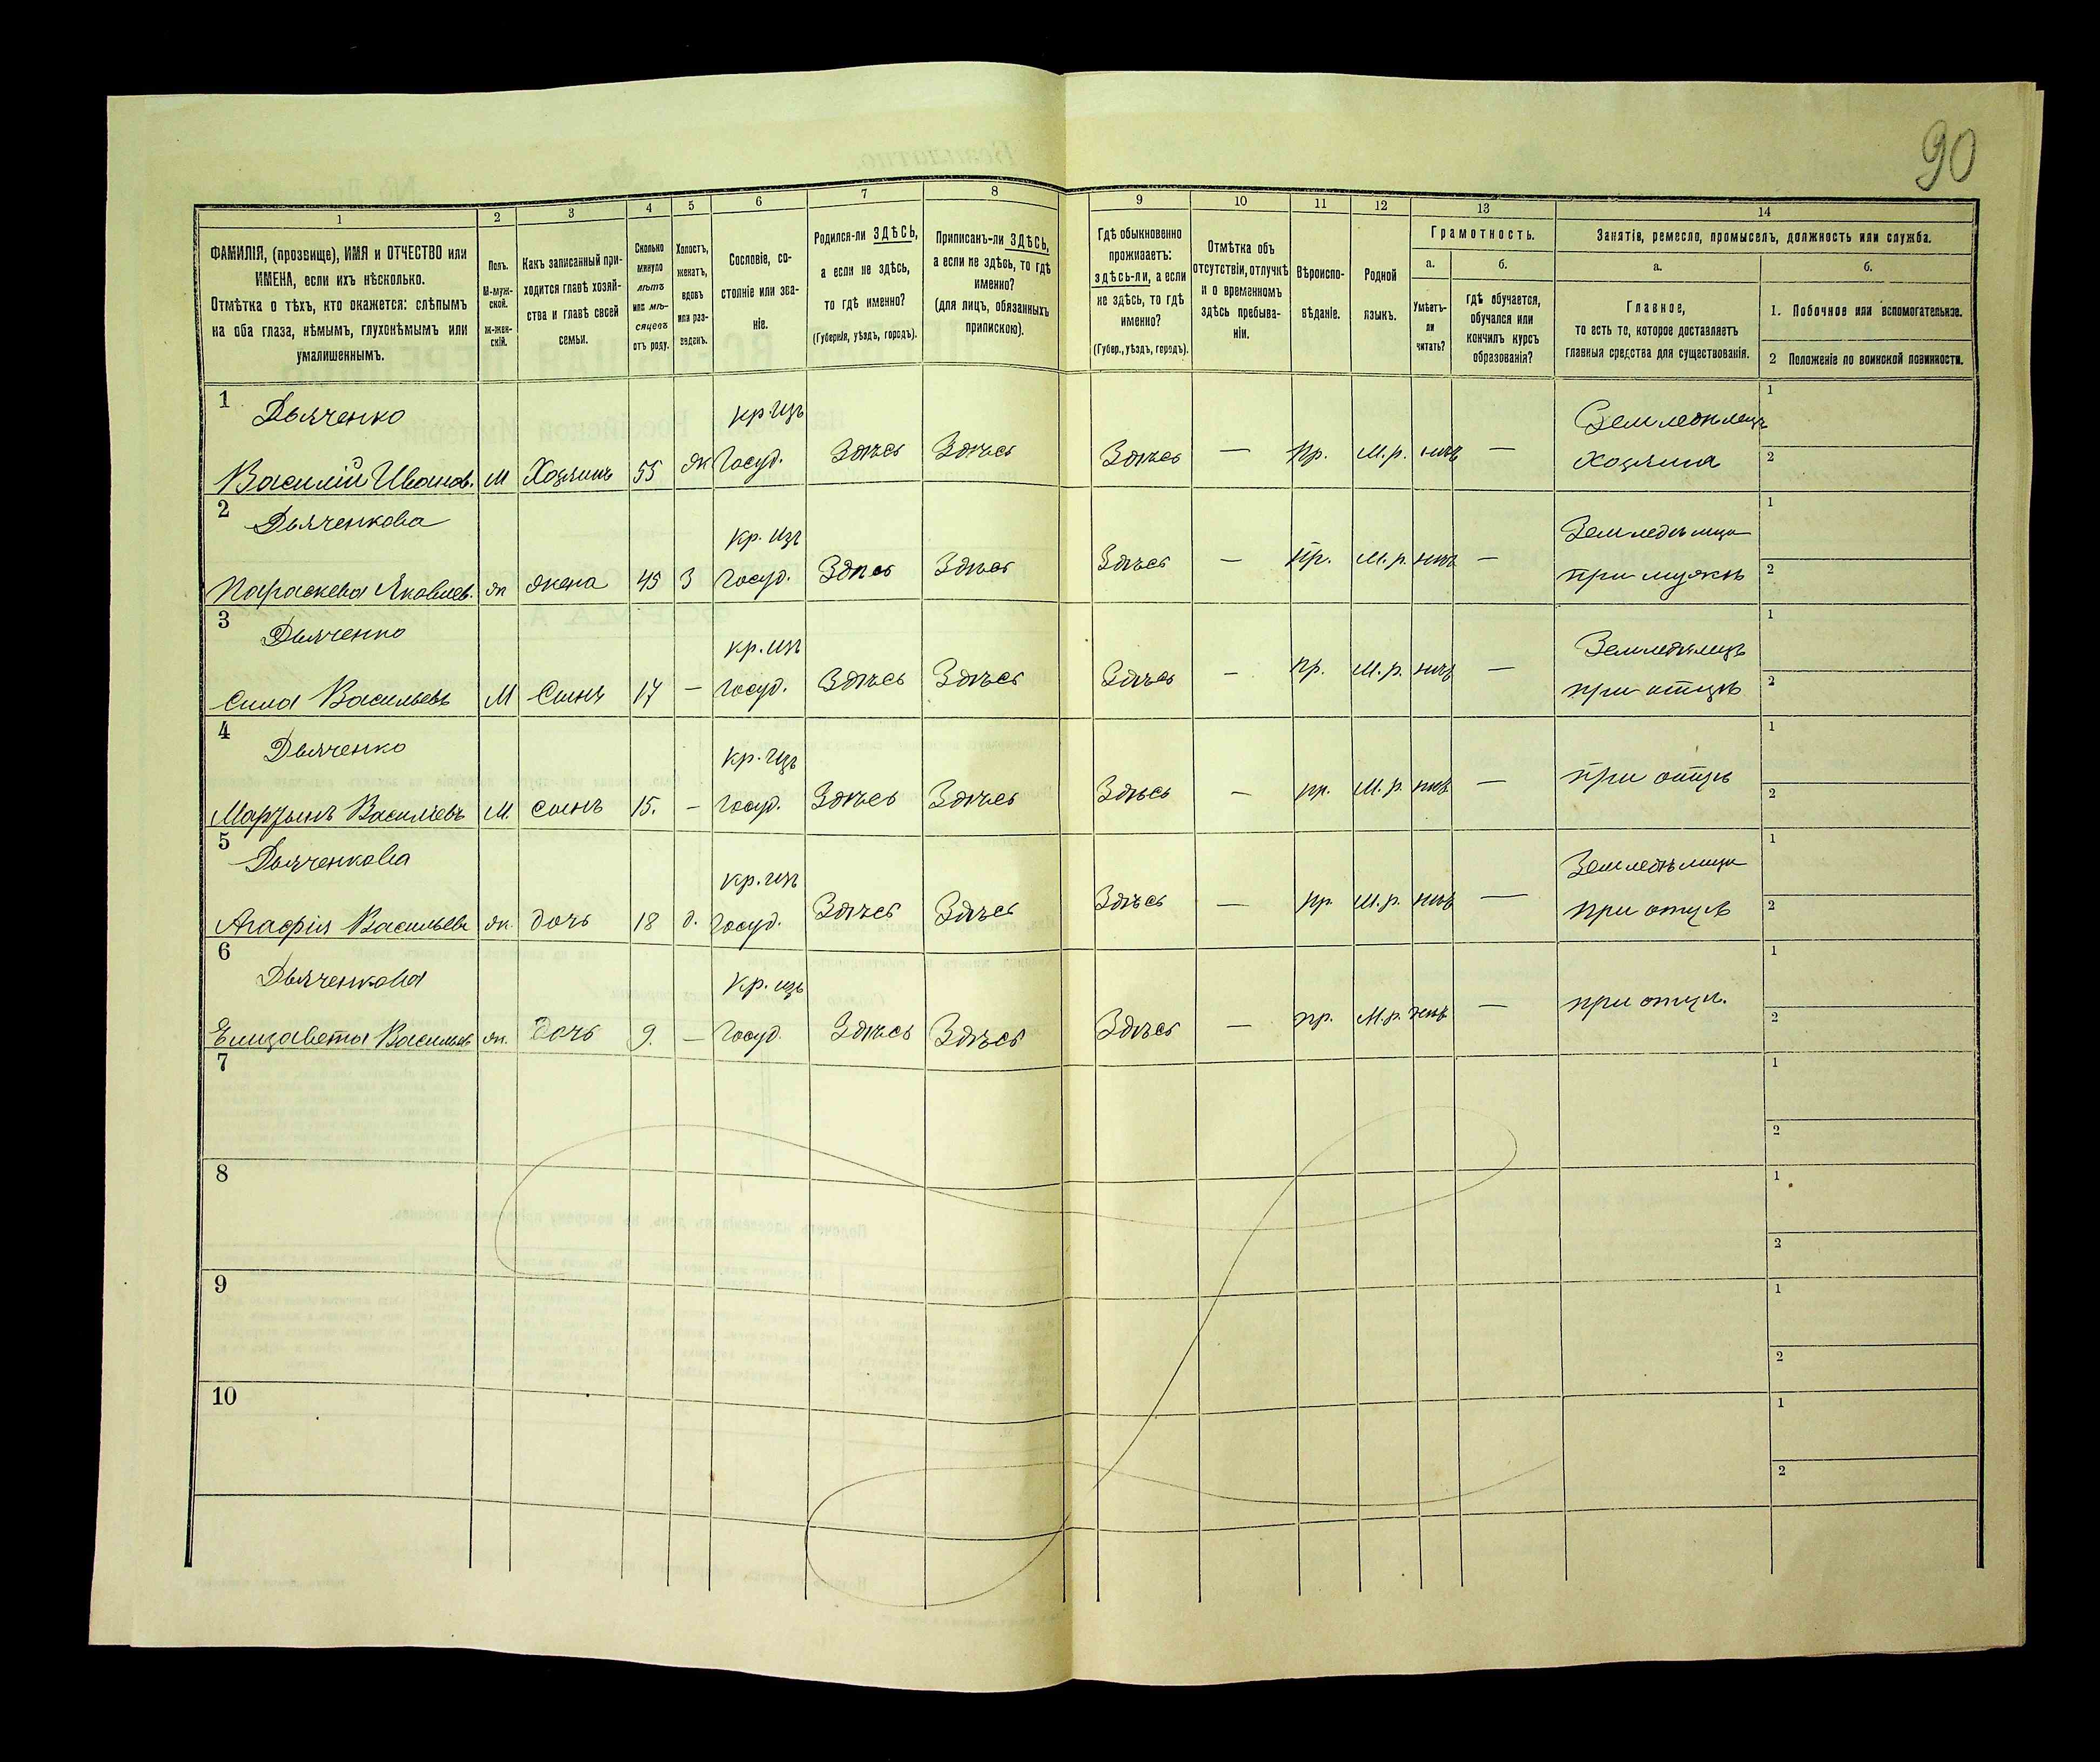 90
1 2 3 4 5 6 7 8 9 10 11 12 13 14
ФАМИЛІЯ, (прозвище), ИМЯ и ОТЧЕСТВО или
ИМЕНА, если ихъ нѣсколько.
Отмѣтка о тѣхъ, кто окажется: слѣпымъ
на оба глаза, нѣмымъ, глухонѣмымъ или
умалишеннымъ.
Полъ.
М-муж-
ской.
ж-жен-
скій.
Какъ записанный при-
ходится главѣ хозяй-
ства и главѣ своей
семьи.
Сколько
минуло
лѣтъ
или мѣ-
сяцевъ
отъ роду.
Холостъ,
женатъ,
вдовъ
или раз-
веденъ.
Сословіе, со-
стояніе или зва-
ніе.
Родился-ли ЗДѢСЬ,
а если не здѣсь,
то гдѣ именно?
(Губернія, уѣздъ, городъ).
Приписанъ-ли ЗДѢСЬ,
а если не здѣсь, то гдѣ
именно?
(для лицъ, обязанныхъ
припискою).
Гдѣ обыкновенно
проживаетъ:
здѣсь-ли, а если
не здѣсь, то гдѣ
именно?
(Губер., уѣздъ, городъ).
Отмѣтка объ
отсутствіи, отлучкѣ
и о временномъ
здѣсь пребыва-
ніи.
Вѣроиспо-
вѣданіе.
Родной
языкъ.
Грамотность.
а.
Умѣетъ-
ли
читать?
б.
Гдѣ обучается,
обучался или
кончилъ курсъ
образованія?
Занятіе, ремесло, промыселъ, должность или служба.
а.
Главное,
то есть то, которое доставляетъ
главныя средства для существованія.
б.
1. Побочное или вспомогательное.
2 Положеніе по воинской повинности.
1 Дьяченко кр. изъ Земледѣлецъ 1
Василій Иванов. М Хозяинъ 55 ж Госуд. Здѣсь Здѣсь Здѣсь — Пр. М.р. нѣтъ — Хозяинъ 2
2 Дьяченкова кр. изъ Земледѣлица 1
Параскева Яковлев. ж жена 45 З Госуд. Здѣсь Здѣсь Здѣсь — Пр. М.р. нѣтъ — при мужѣ 2
3 Дьяченко кр. изъ Земледѣлецъ 1
Сила Васильевъ М Сынъ 17 — Госуд. Здѣсь Здѣсь Здѣсь — пр. М.р. нѣтъ — при отцѣ 2
4 Дьяченко кр. изъ 1
Мартынъ Васильевъ М. сынъ 15. — Госуд. Здѣсь Здѣсь Здѣсь — пр. М.р. нѣтъ — при отцѣ 2
5 Дьяченкова кр. изъ Земледѣлица 1
Агафія Васильев ж. дочь 18 д. Госуд. Здѣсь Здѣсь Здѣсь — пр. М.р. нѣтъ — при отцѣ 2
6 Дьяченкова кр. изъ 1
Елизавета Васильев ж. дочь 9. — Госуд. Здѣсь Здѣсь Здѣсь — пр. М.р. нѣтъ — при отцѣ. 2
7 1
2
8 1
2
9 1
2
10 1
2